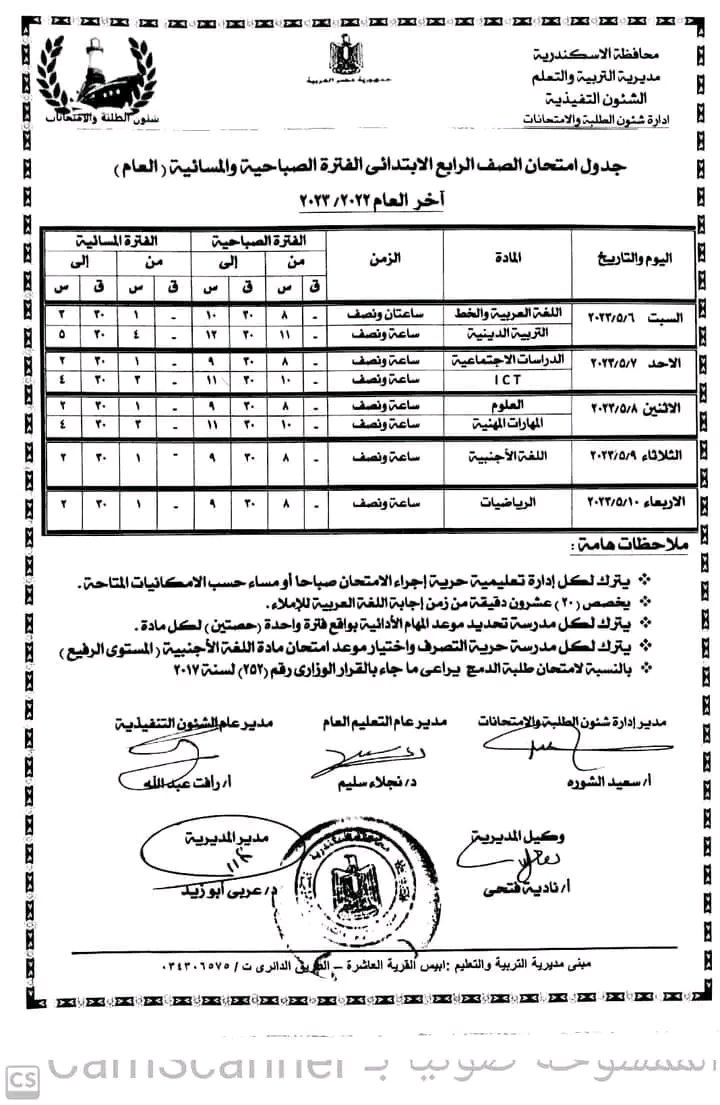 محافظة الاسكندرية
مديرية التربية والتعلم
الشئون التنفيذية
إدارة شئون الطلبة والامتحانات
جمهورية مصر العربية
شئون الطلبة والامتحانات
جدول امتحان الصف الرابع الابتدائى الفترة الصباحية والمسائية (العام)
آخر العام ٢٠٢٢/٢٠٢٣
اليوم والتاريخ المادة الزمن الفترة الصباحية الفترة المسائية
من إلى من إلى
ق س ق س ق س ق س
السبت ٢٠٢٣/٥/٦ اللغة العربية والخط ساعتان ونصف - ٨ ٣٠ ١٠ - ١ ٣٠ ٣
التربية الدينية ساعة ونصف - ١١ ٣٠ ١٢ - ٤ ٣٠ ٥
الاحد ٢٠٢٣/٥/٧ الدراسات الاجتماعية ساعة ونصف - ٨ ٣٠ ٩ - ١ ٣٠ ٢
ICT ساعة ونصف - ١٠ ٣٠ ١١ - ٣ ٣٠ ٤
الاثنين ٢٠٢٣/٥/٨ العلوم ساعة ونصف - ٨ ٣٠ ٩ - ١ ٣٠ ٢
المهارات المهنية ساعة ونصف - ١٠ ٣٠ ١١ - ٣ ٣٠ ٤
الثلاثاء ٢٠٢٣/٥/٩ اللغة الأجنبية ساعة ونصف - ٨ ٣٠ ٩ - ١ ٣٠ ٢
الاربعاء ٢٠٢٣/٥/١٠ الرياضيات ساعة ونصف - ٨ ٣٠ ٩ - ١ ٣٠ ٢
ملاحظات هامة :
❖ يترك لكل إدارة تعليمية حرية إجراء الامتحان صباحا أو مساء حسب الامكانيات المتاحة.
❖ يخصص (٢٠) عشرون دقيقة من زمن إجابة اللغة العربية للإملاء.
❖ يترك لكل مدرسة تحديد موعد المهام الأدائية بواقع فترة واحدة (حصتين) لكل مادة.
❖ يترك لكل مدرسة حرية التصرف واختيار موعد امتحان مادة اللغة الأجنبية (المستوى الرفيع)
❖ بالنسبة لامتحان طلبة الدمج يراعى ما جاء بالقرار الوزارى رقم (٢٥٢) لسنة ٢٠١٧
مدير إدارة شئون الطلبة والامتحانات مدير عام التعليم العام مدير عام الشئون التنفيذية
أ/ سعيد الشوره د/ نجلاء سليم أ/ رأفت عبد الله
وكيل المديرية مدير المديرية
أ/ نادية فتحى د/ عربى أبو زيد
مبنى مديرية التربية والتعليم : ابيس القرية العاشرة – الطريق الدائرى ت / ٠٣٤٣٠٦٥٧٥
CS الممسوحة ضوئيا بـ CamScanner